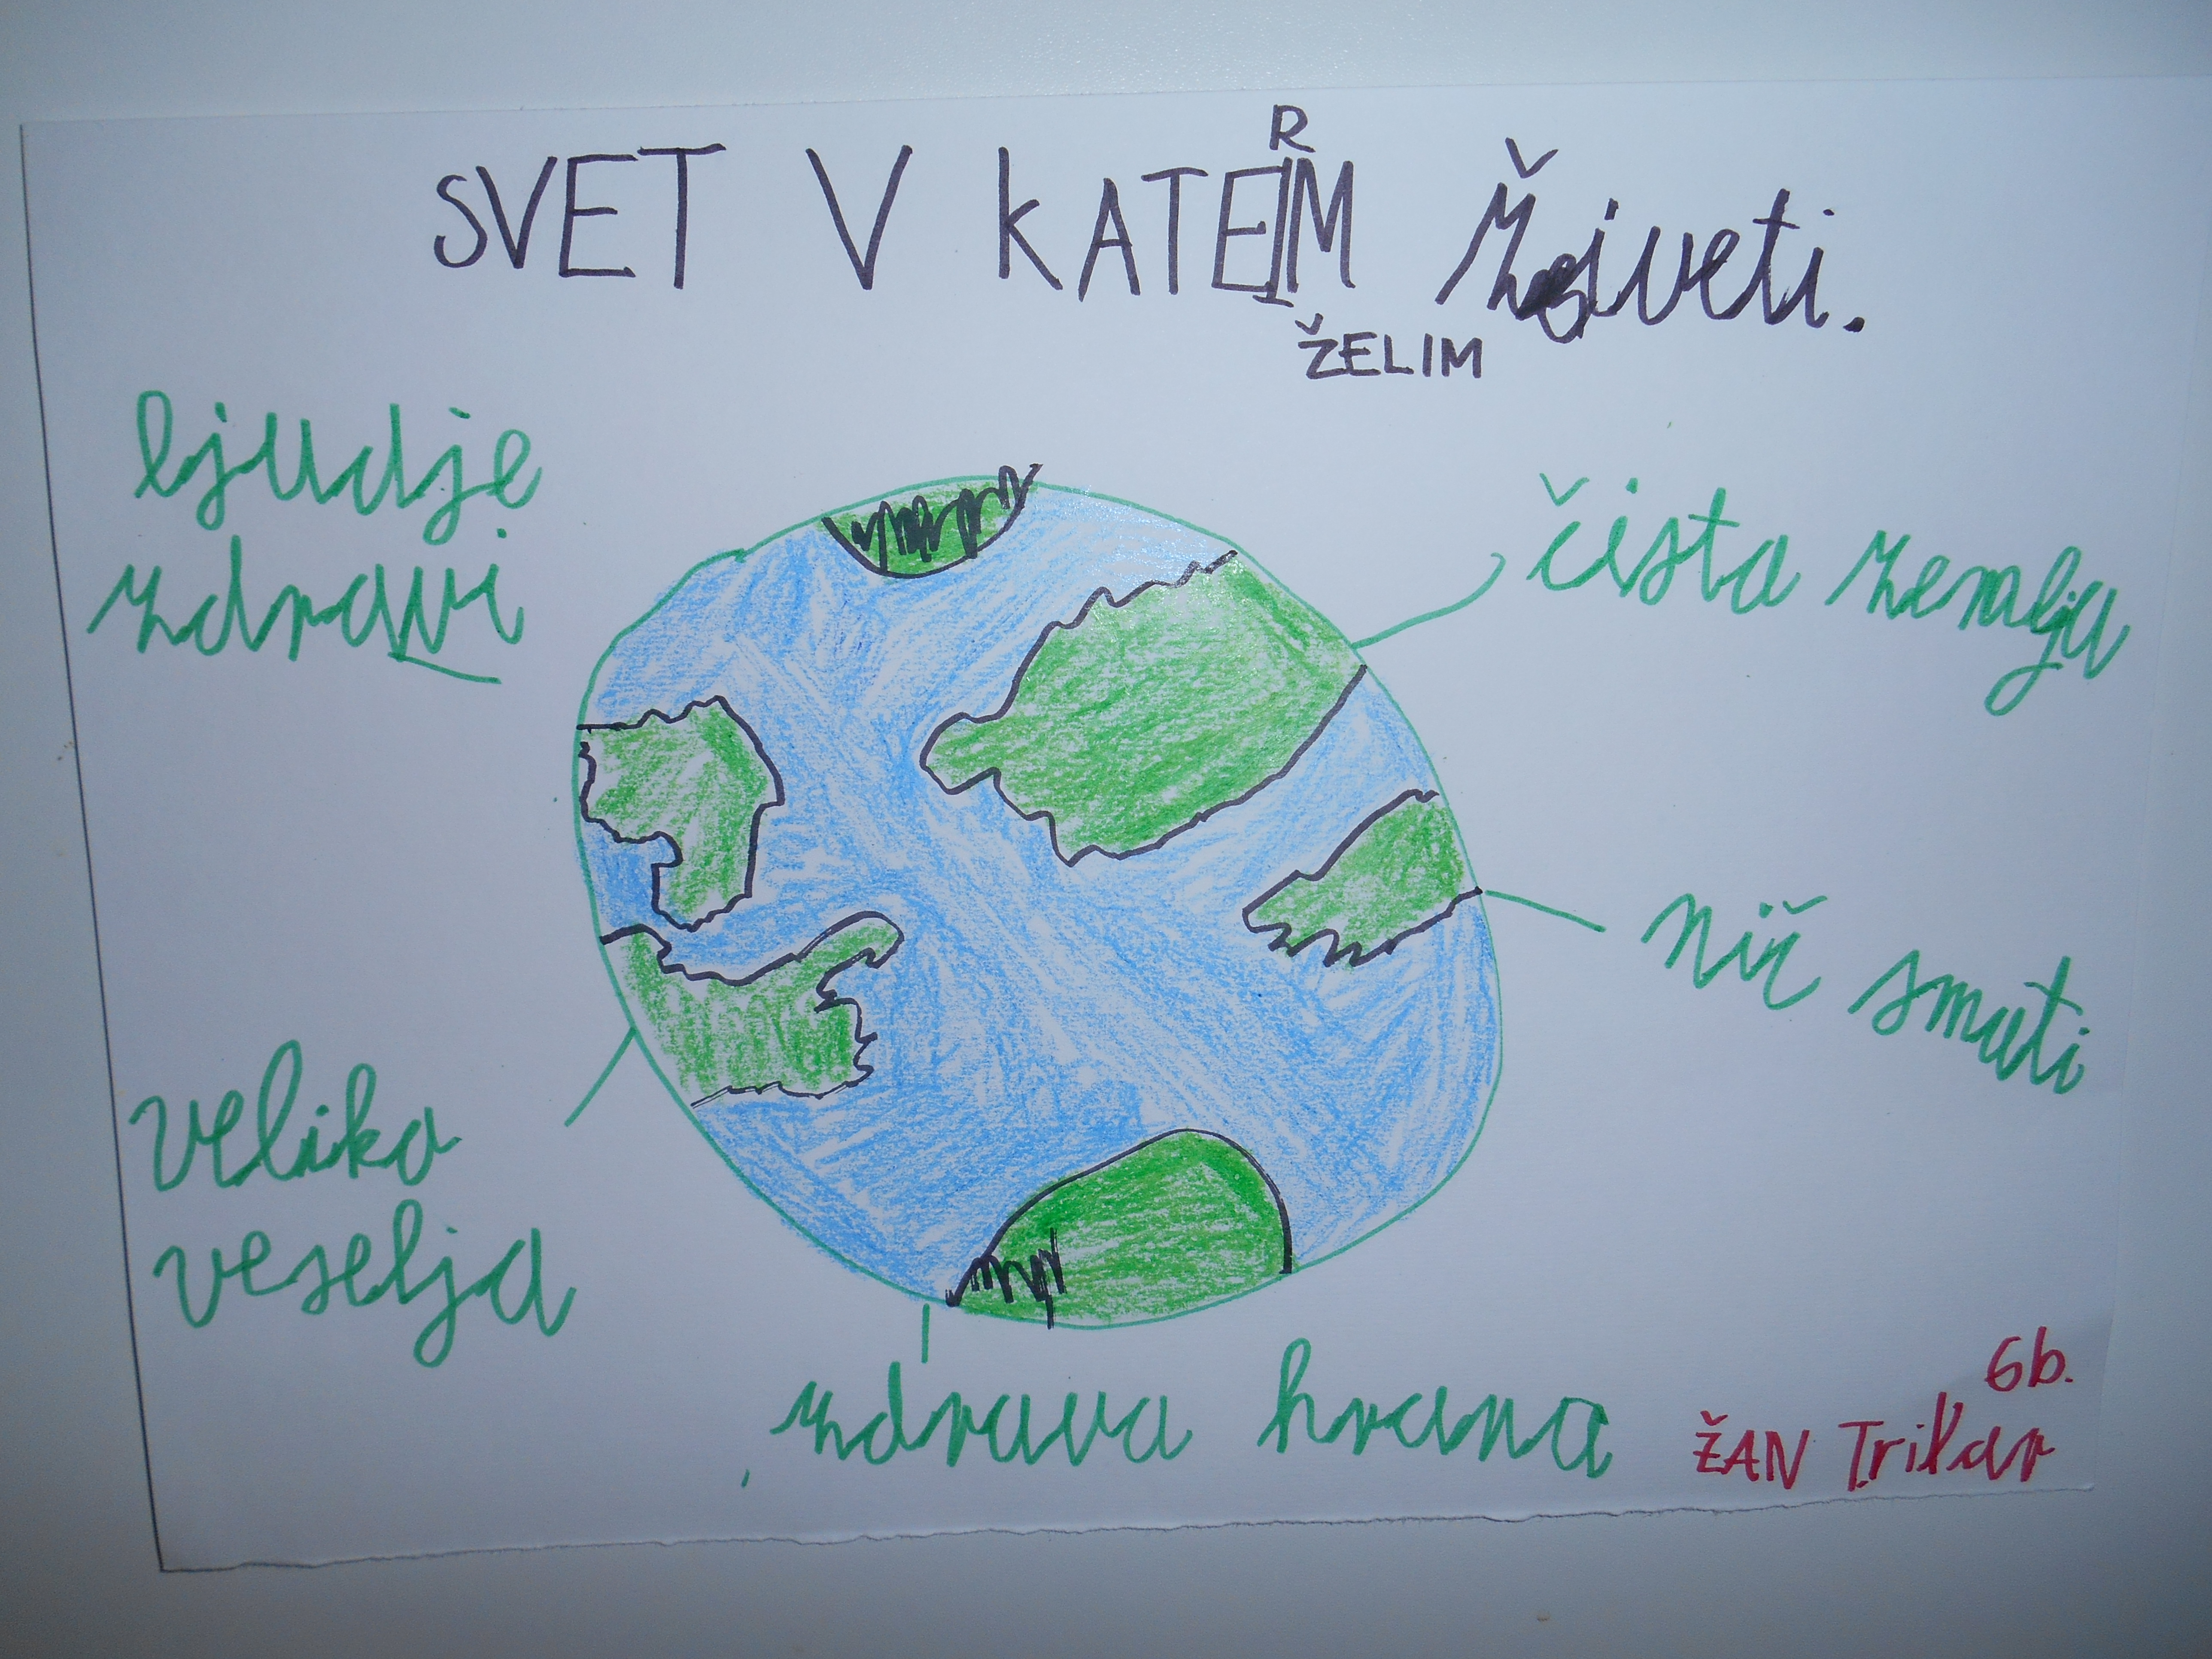 SVET V KATERIM ŽELIM živeti.
ljudje
zdravi
čista zemlja
nič smeti
veliko
veselja
zdrava hrana
6b.
ŽAN Trilar